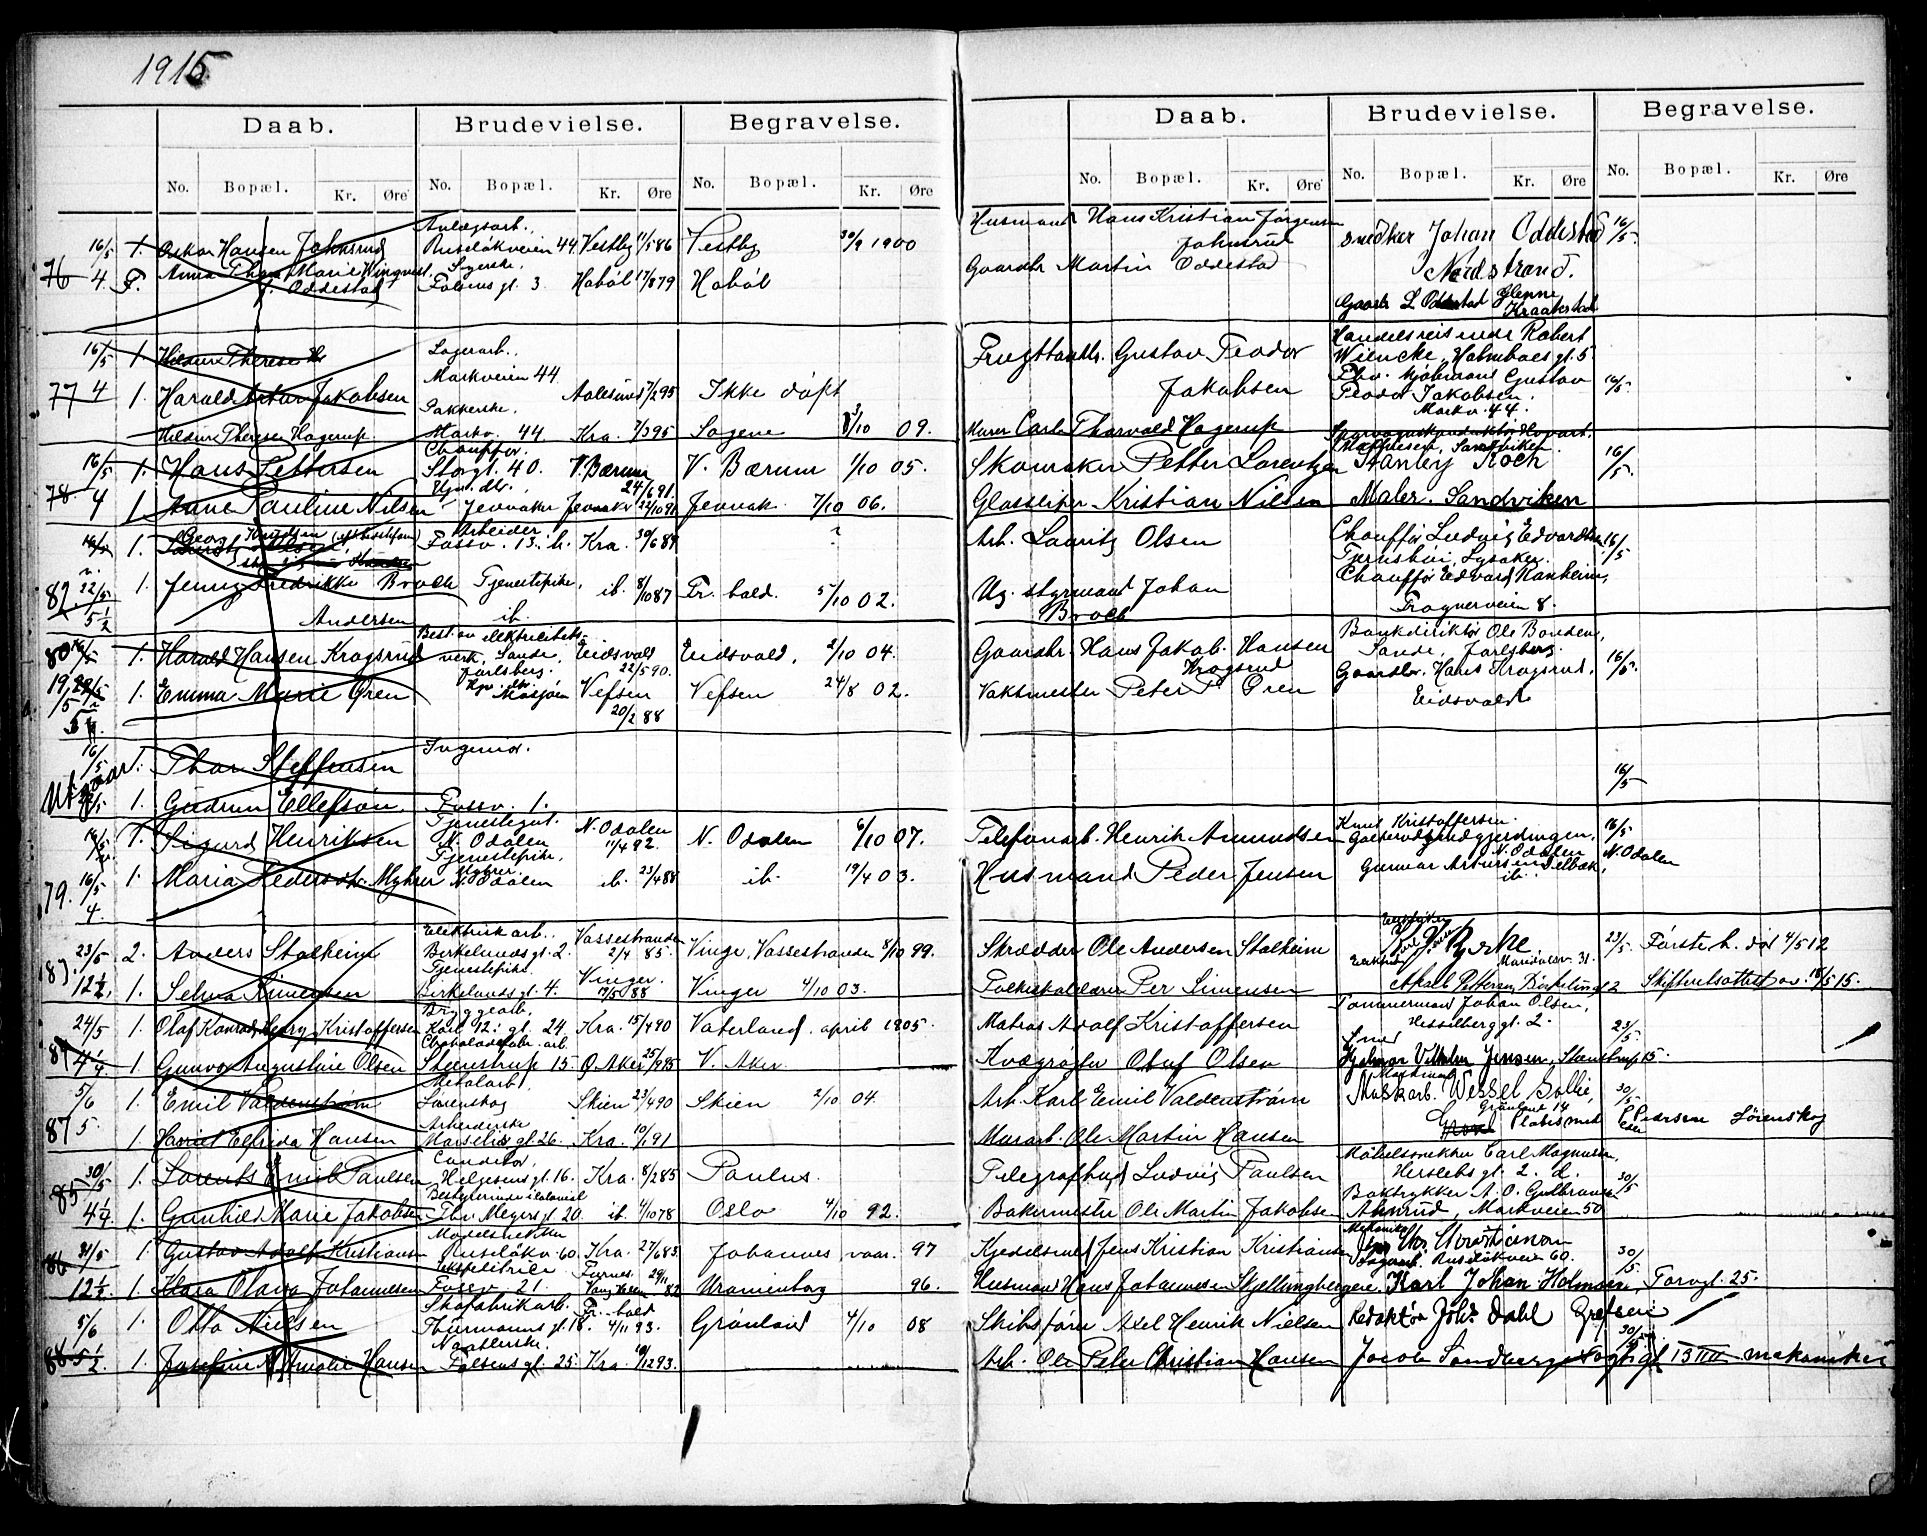 1915
Daab. Brudevielse. Begravelse. Daab. Brudevielse. Begravelse.
No. Bopæl. Kr. Øre No. Bopæl. Kr. Øre No. Bopæl. Kr. Øre No. Bopæl. Kr. Øre No. Bopæl. Kr. Øre No. Bopæl. Kr. Øre
Anlægsarb.
16/5 1. Oskar Hansen Johnsrud Ruseløkveien 44 Vestby 11/5 86 Vestby 30/9 1900 Husmand Hans Kristian Jørgensen Johnsrud snedker Johan Oddestad 16/5
Nordstrand.
76 4 F. Anna Marie Ringvest f. Oddestad Falsens gt. 3 Habøl 17/8 79 Habøl Gaardbr Martin Oddestad Gaardbr L Oddestad Glenne Kraakstad
16/5 1. Hildur Therese Lagerarb. Frugthandl. Gustav Teodor Jakobsen Handelsreisende Robert
Wiencke, Holmboes gt. 5
77 4 1. Harald Artur Jakobsen Markveien 44 Aalesund 5/2 95 Ikke døpt Gustav Teodor Jakobsen. 16/5
Markv. 44.
Pakkerske.
Hildur Therese Hagerup Markv. 44 Kra. 7/3 95 Sagene 3/10 09. Murer Carl Thorvald Hagerup
Chauffør.
16/5 1. Hans Pettersen Storgt. 40. V. Bærum 24/6 91. V. Bærum 1/10 05. Skomaker Petter Lorentzen Stanley Koch 16/5
78. 4 1 Anne Pauline Nilsen Jevnaker Jevnaker 22/10 91 Jevnak. 7/10 06. Glassliper Kristian Nilsen Maler. Sandviken
Georg Knudsen Arbeider
16/5 1. Fossv. 13. b. Kra. 30/6 84 ? Arb. Lauritz Olsen Chauffør Ludvig Edvardsen 16/5
Lysaker.
82. 22/5 5 1/2 1. Jenny Fredrikke Broch Tjenestepike, ib. 8/10 87 Fr. hald. 5/10 02. Ug. styrmand Johan Broch Chauffør Edvard Ranheim,
Frognerveien 8.
Andersen ib.
Best. av elektricitets-
80 16/5 1. Harald Hansen Krogsrud verk, Sande, Jarlsberg. Eidsvold 22/5 90. Eidsvold. 2/10 04. Gaardbr. Hans Jakob Hansen Krogsrud Bankdirektør Ole Bonden,
Sande, Jarlsberg. 16/5
19/5 1. Emma Marie Øren Mosjøen Vefsen 20/2 88 Vefsen 24/8 02. Vaktmester Peter P. Øren Gaardbr. Hans Krogsrud,
Eidsvold
16/5 1. Thor Steffensen Ingeniør. 16/5
Utgaar 1. Gudrun Ellefson. Fossv. 1.
Tjenestegut.
16/5 1. Sigurd Henriksen N. Odalen N. Odalen 11/4 92. N. Odalen 6/10 07. Telefonarb. Henrik Amundsen Knut Kristoffersen. 16/5
N. Odalen
79. 16/5 4 1. Maria Pedersd. Myhrer Tjenestepike, N. Odalen ib. 23/4 88 ib. 19/4 03. Husmand Peder Jensen Gunnar Artursen
ib.
Elektrisk arb.
83. 23/5 2. Anders Stalheim Birkelunds gt. 2. Vassestranden 2/4 85. Vinge, Vassestranden 8/10 99. Skrædder Ole Andersen Stalheim Maridalsv. 31. 23/5 Første h. død 4/5 12
Tjenestepike.
12 1/2 1. Selma Simensen Birkelunds gt. 4. Vinger. 19/5 88 Vinger 4/10 03. Per Simensen Skifteretsattest av 18/5 15.
Bryggearb.
24/5 1. Olaf Konrad Georg Kristoffersen Karl 12. gt. 24 Kra. 15/4 90 Vaterland april 1905. Matros Adolf Kristoffersen Tømmermand Johan Olsen,
Hesselberg gt. 2. 23/5
Chokoladefabr. arb.
4 1/4 1. Gunvor Augustine Olsen Steenstrup 15. Ø. Aker 25/9 95 V. Aker. Kvægrøgter Olaf Olsen Hjalmar Vilhelm Jensen, Steenstrup 15.
Metalarb.
5/6 1. Emil Valdenstrøm Lørenskog Skien 23/4 90 Skien 2/10 04. Arb. Karl Emil Valdenstrøm Wessel Sollie, 30/5
Grønland 14
87 5. 1. Harriet Elfrida Hansen Arbeiderske Marselis gt. 26. Kra. 10/1 91 Murarb. Ole Martin Hansen Pedersen Lørenskog
Conditor,
85 30/5 1. Lorents Emil Paulsen Helgesens gt. 16. Kra. 8/2 85 Paulus. Telegrafbud Ludvig Paulsen Møbelsnekker Carl Magnussen,
Herslebs gt. 2. d. 30/5
4 1/4 1. Gunhild Marie Jakobsen Thv. Meyers gt. 20. ib. 4/10 78 Oslo 4/10 92. Bakermester Ole Martin Jakobsen Boktrykker A. O. Gulbransen
Markveien 50
Modelsnekker
86 31/5 1. Gustav Adolf Kristiansen Ruseløkv. 60. Kra. 27/6 83. Johannes vaar. 97 Kjedelsmed Jens Kristian Kristiansen Ruseløkveien 60. 30/5
Ekspeditrice
12 1/2 1. Klara Olava Johannesen Fossv. 21. Furnes. 29/11 82 Uranienborg 96. Husmand Hans Johannesen Karl Johan Holmsen, Torvgt. 25.
Skofabrikarb.
5/6 1. Otto Nielsen Thurmanns gt. 18. Fr. hald 4/11 93. Grønland 4/10 08 Skibsfører Axel Henrik Nielsen Redaktør Johs Dahl Grefsen
30/5
88 5 1/2 1. Josefine Amalie Hansen Falsens gt. 25. Kra. 10/12 93. Arb. Ole Peter Christian Hansen Jacob Sandberg Vogts gt 13 III mekaniker